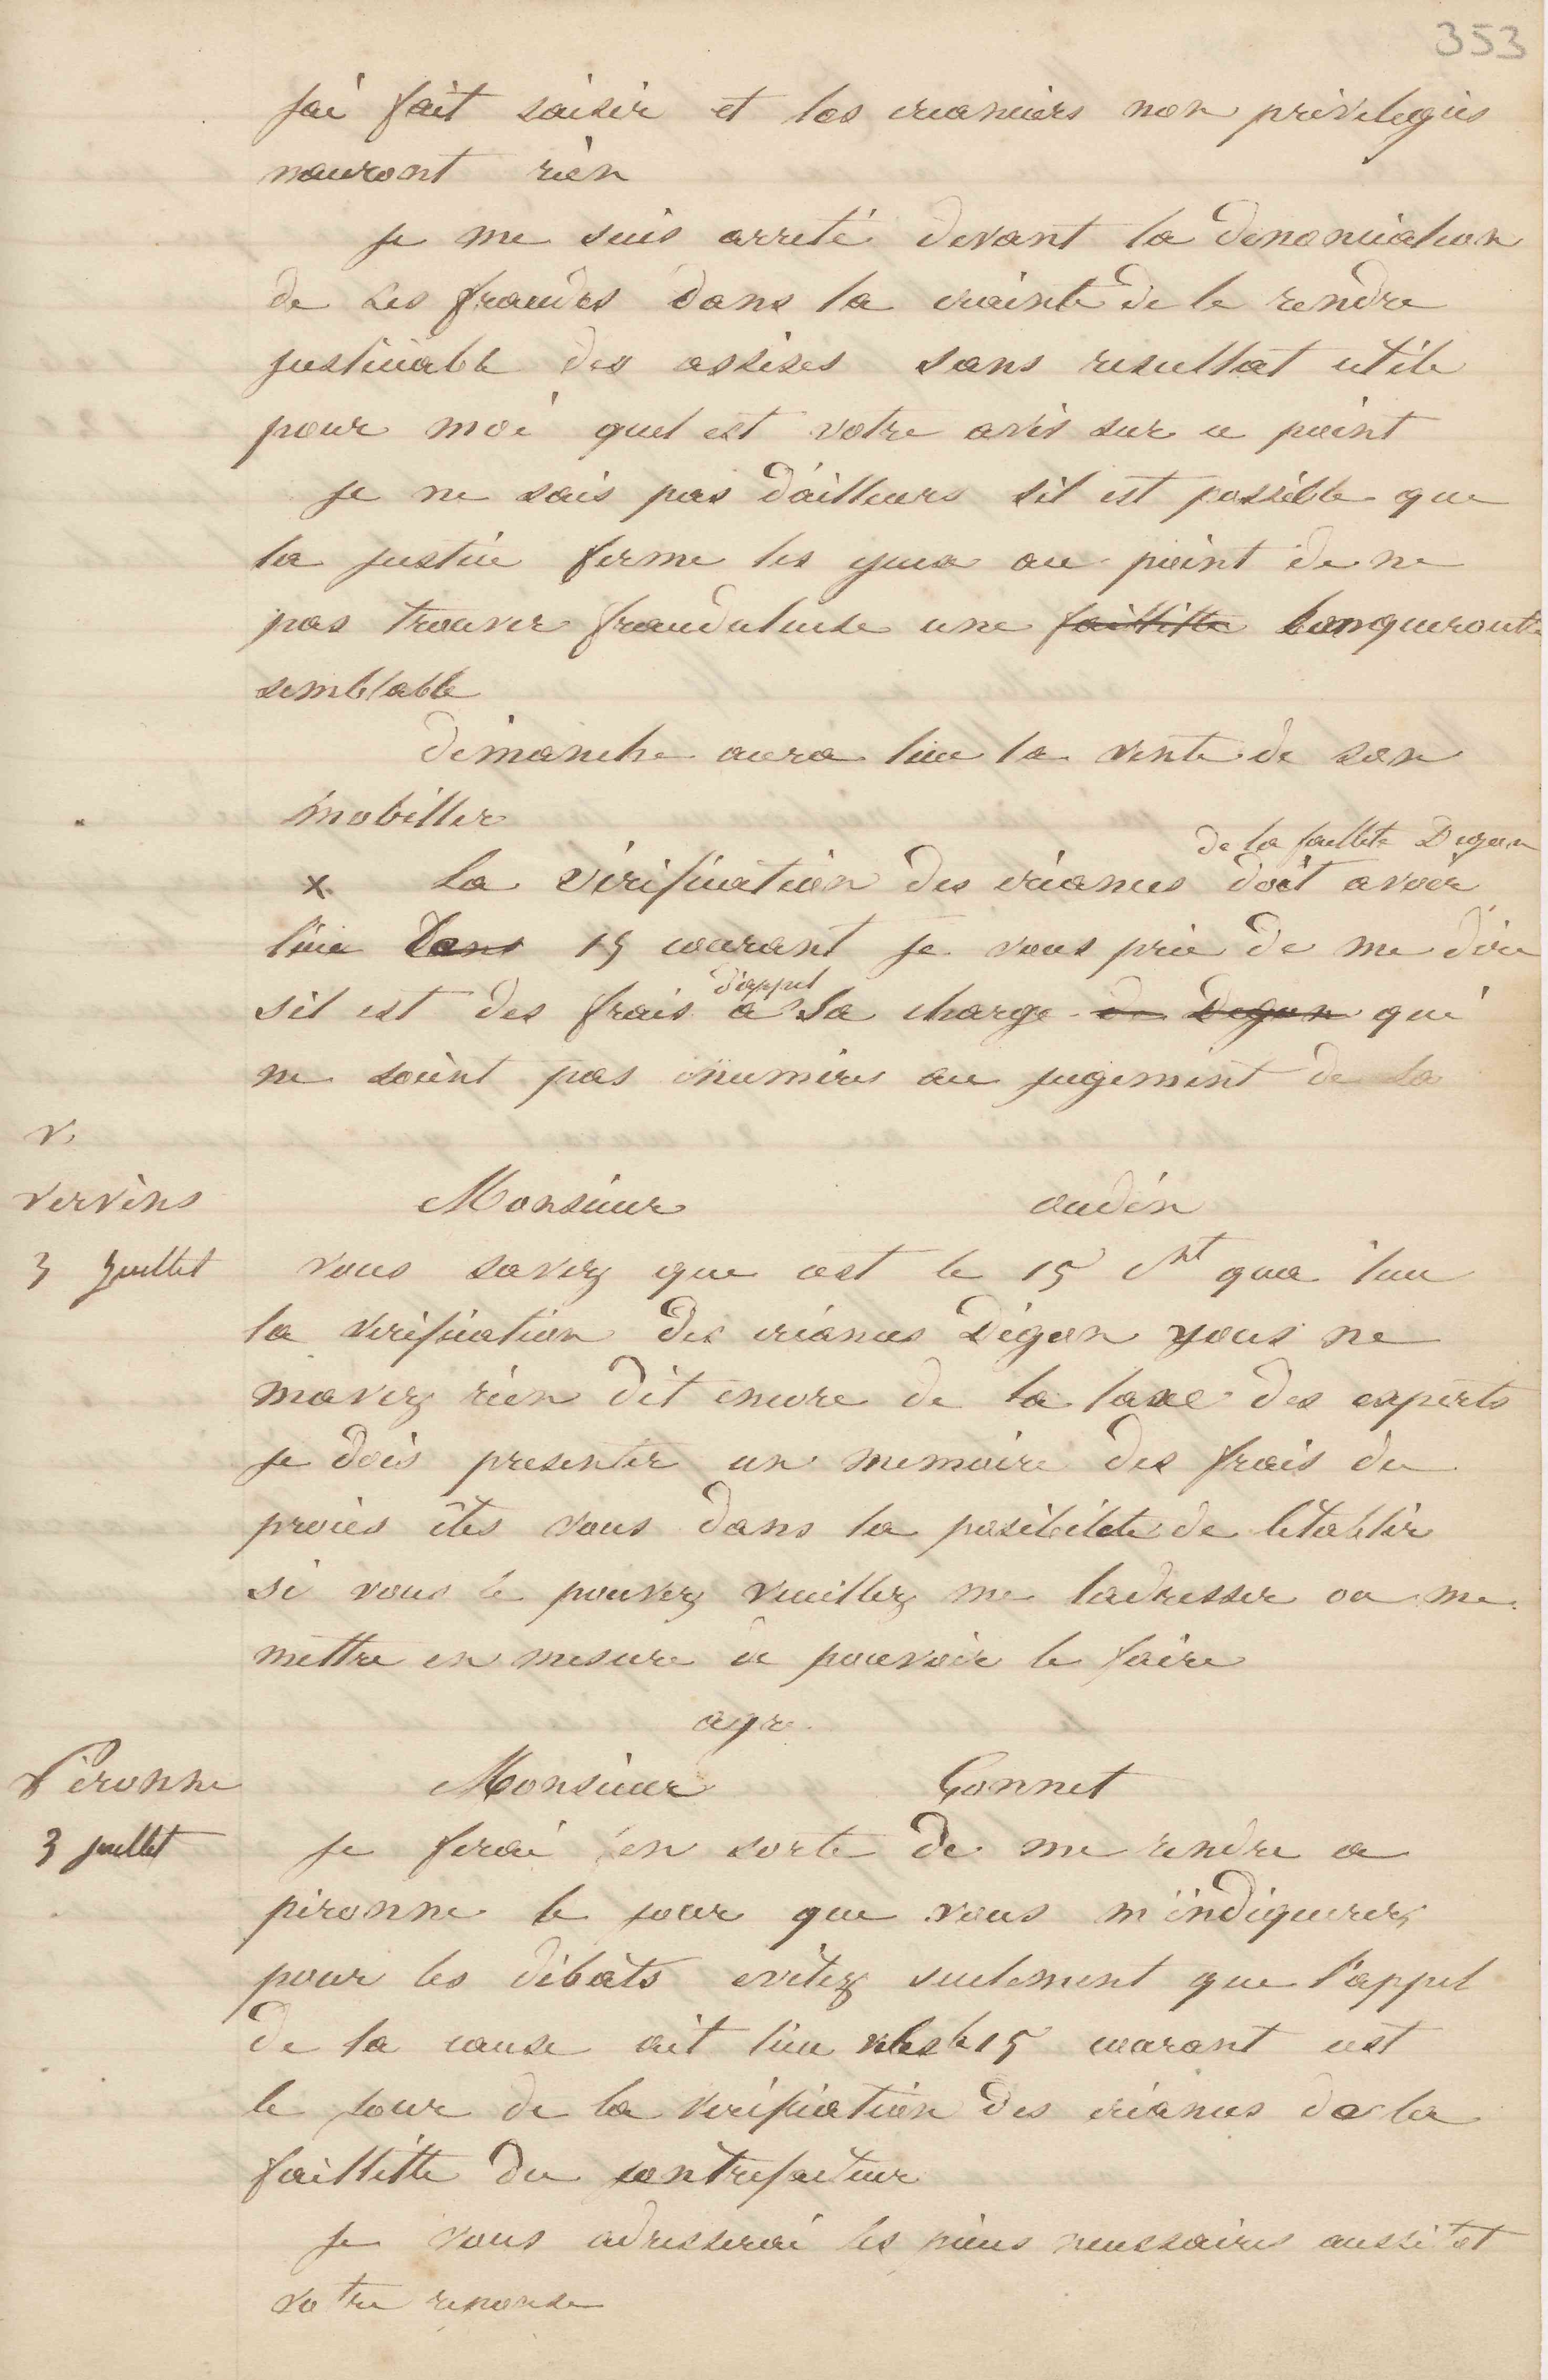 353
jai fait saisir et les creanciers non privelegies
nauront rien
je me suis arreté devant la denonciation
de ses fraudes dans la crainte de le rendre
justiciable des assises sans resultat utile
pour moi quel est votre avis sur ce point
je ne sais pas d'ailleurs sil est possible que
la justice ferme les yeux au point de ne
pas trouver frauduleuse une faillitte banqueroute
semblable
dimanche aura lieu la vente de son
mobillier
de la faillite Degon
x la vérification des créances doit avoir
lieu dans 15 courant je vous prie de me dire
d'appel
sil est des frais a sa charge de Degon qui
ne soient pas énumérés au jugement de la
v.
vervins
Monsieur audin
3 Juillet
vous savez que cest le 15 ct qua lieu
la verification des créances Dégon vous ne
mavez rien dit encore de la taxe des experts
je dois presenter un memoire des frais du
procès êtes vous dans la posibilité de létablir
si vous le pouvez veuillez me ladresser ou me
mettre en mesure de pouvoir le faire
agr.
Péronne
Monsieur Gonnet
3 juillet
je ferai en sorte de me rendre a
péronne le jour que vous m'indiquerez
pour les débats evitez seulement que l'appel
de la cause ait lieu le 15 courant cest
le jour de la verification des créances de la
faillitte du contrefacteur
je vous adresserai les pièces necessaires aussitot
votre reponse